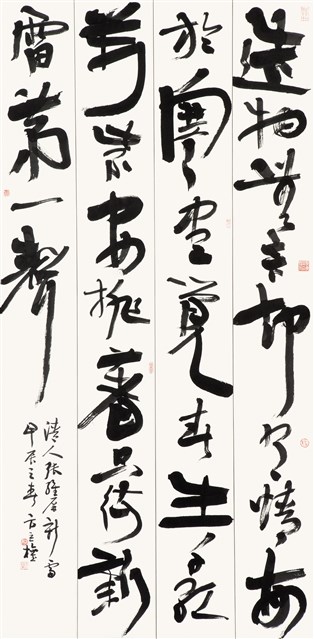 造物無言却有情每
於寒盡覺春生千紅
萬紫安排著只待新
雷第一聲
清人張維屏新雷
甲辰之春